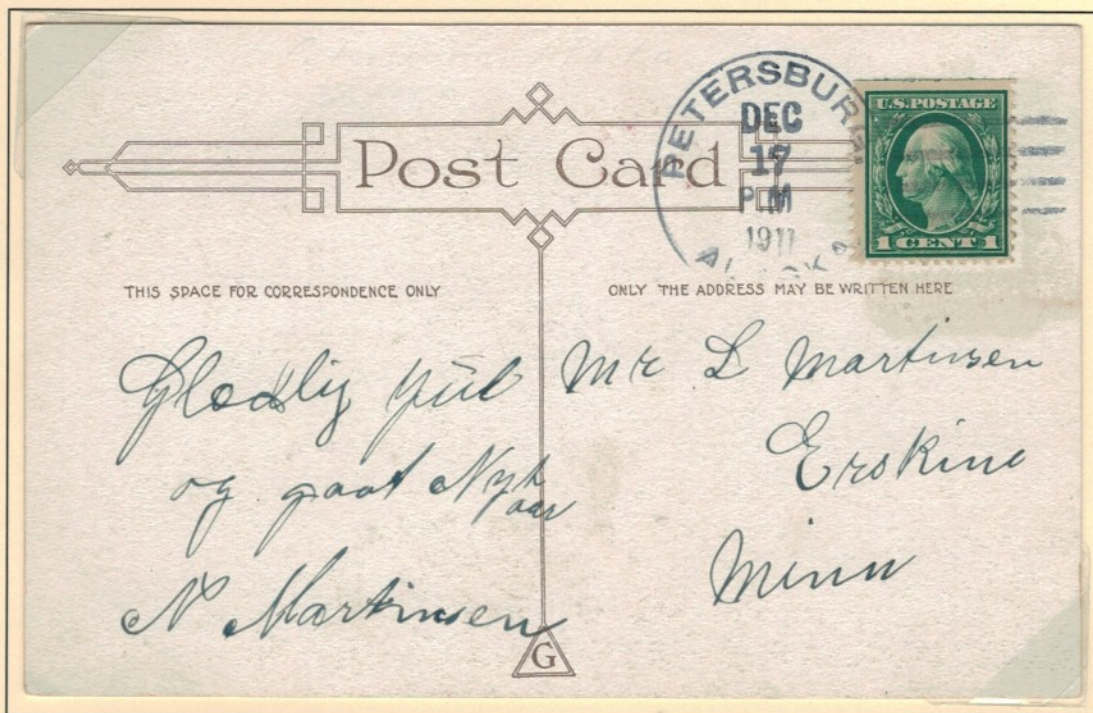 PETERSBURG,
DEC
17
P M
1911
ALASKA
U.S. POSTAGE
1 CENT 1
Post Card
THIS SPACE FOR CORRESPONDENCE ONLY
ONLY THE ADDRESS MAY BE WRITTEN HERE
Glædlig Jül
og goat Nyt
aar
N Martinsen
Mr L Martinsen
Erskine
Minn
G